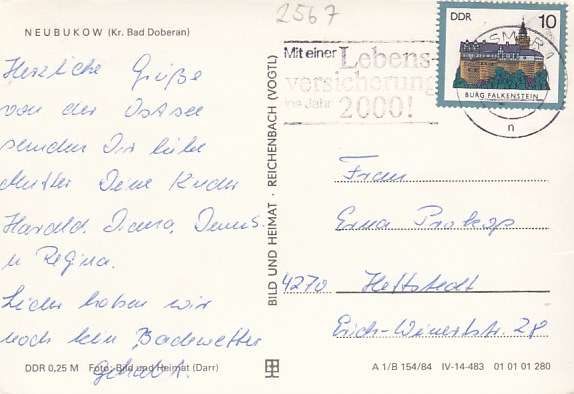 2567
NEUBUKOW (Kr. Bad Doberan)
Herzliche Grüße
von der Ostsee
senden Dir liebe
Mutter Deine Kinder
Harald, Diana, Dennis
u Regina.
Leider haben wir
noch kein Badewetter
gehabt.
DDR 0,25 M Foto: Bild und Heimat (Darr)
BILD UND HEIMAT · REICHENBACH (VOGTL)
Mit einer Lebens-
versicherung
ins Jahr 2000!
DDR 10
BURG FALKENSTEIN
n
Frau
Erna Prokop
4270 Hettstedt
Erich-Weinertstr. 28
A 1/B 154/84 IV-14-483 01 01 01 280